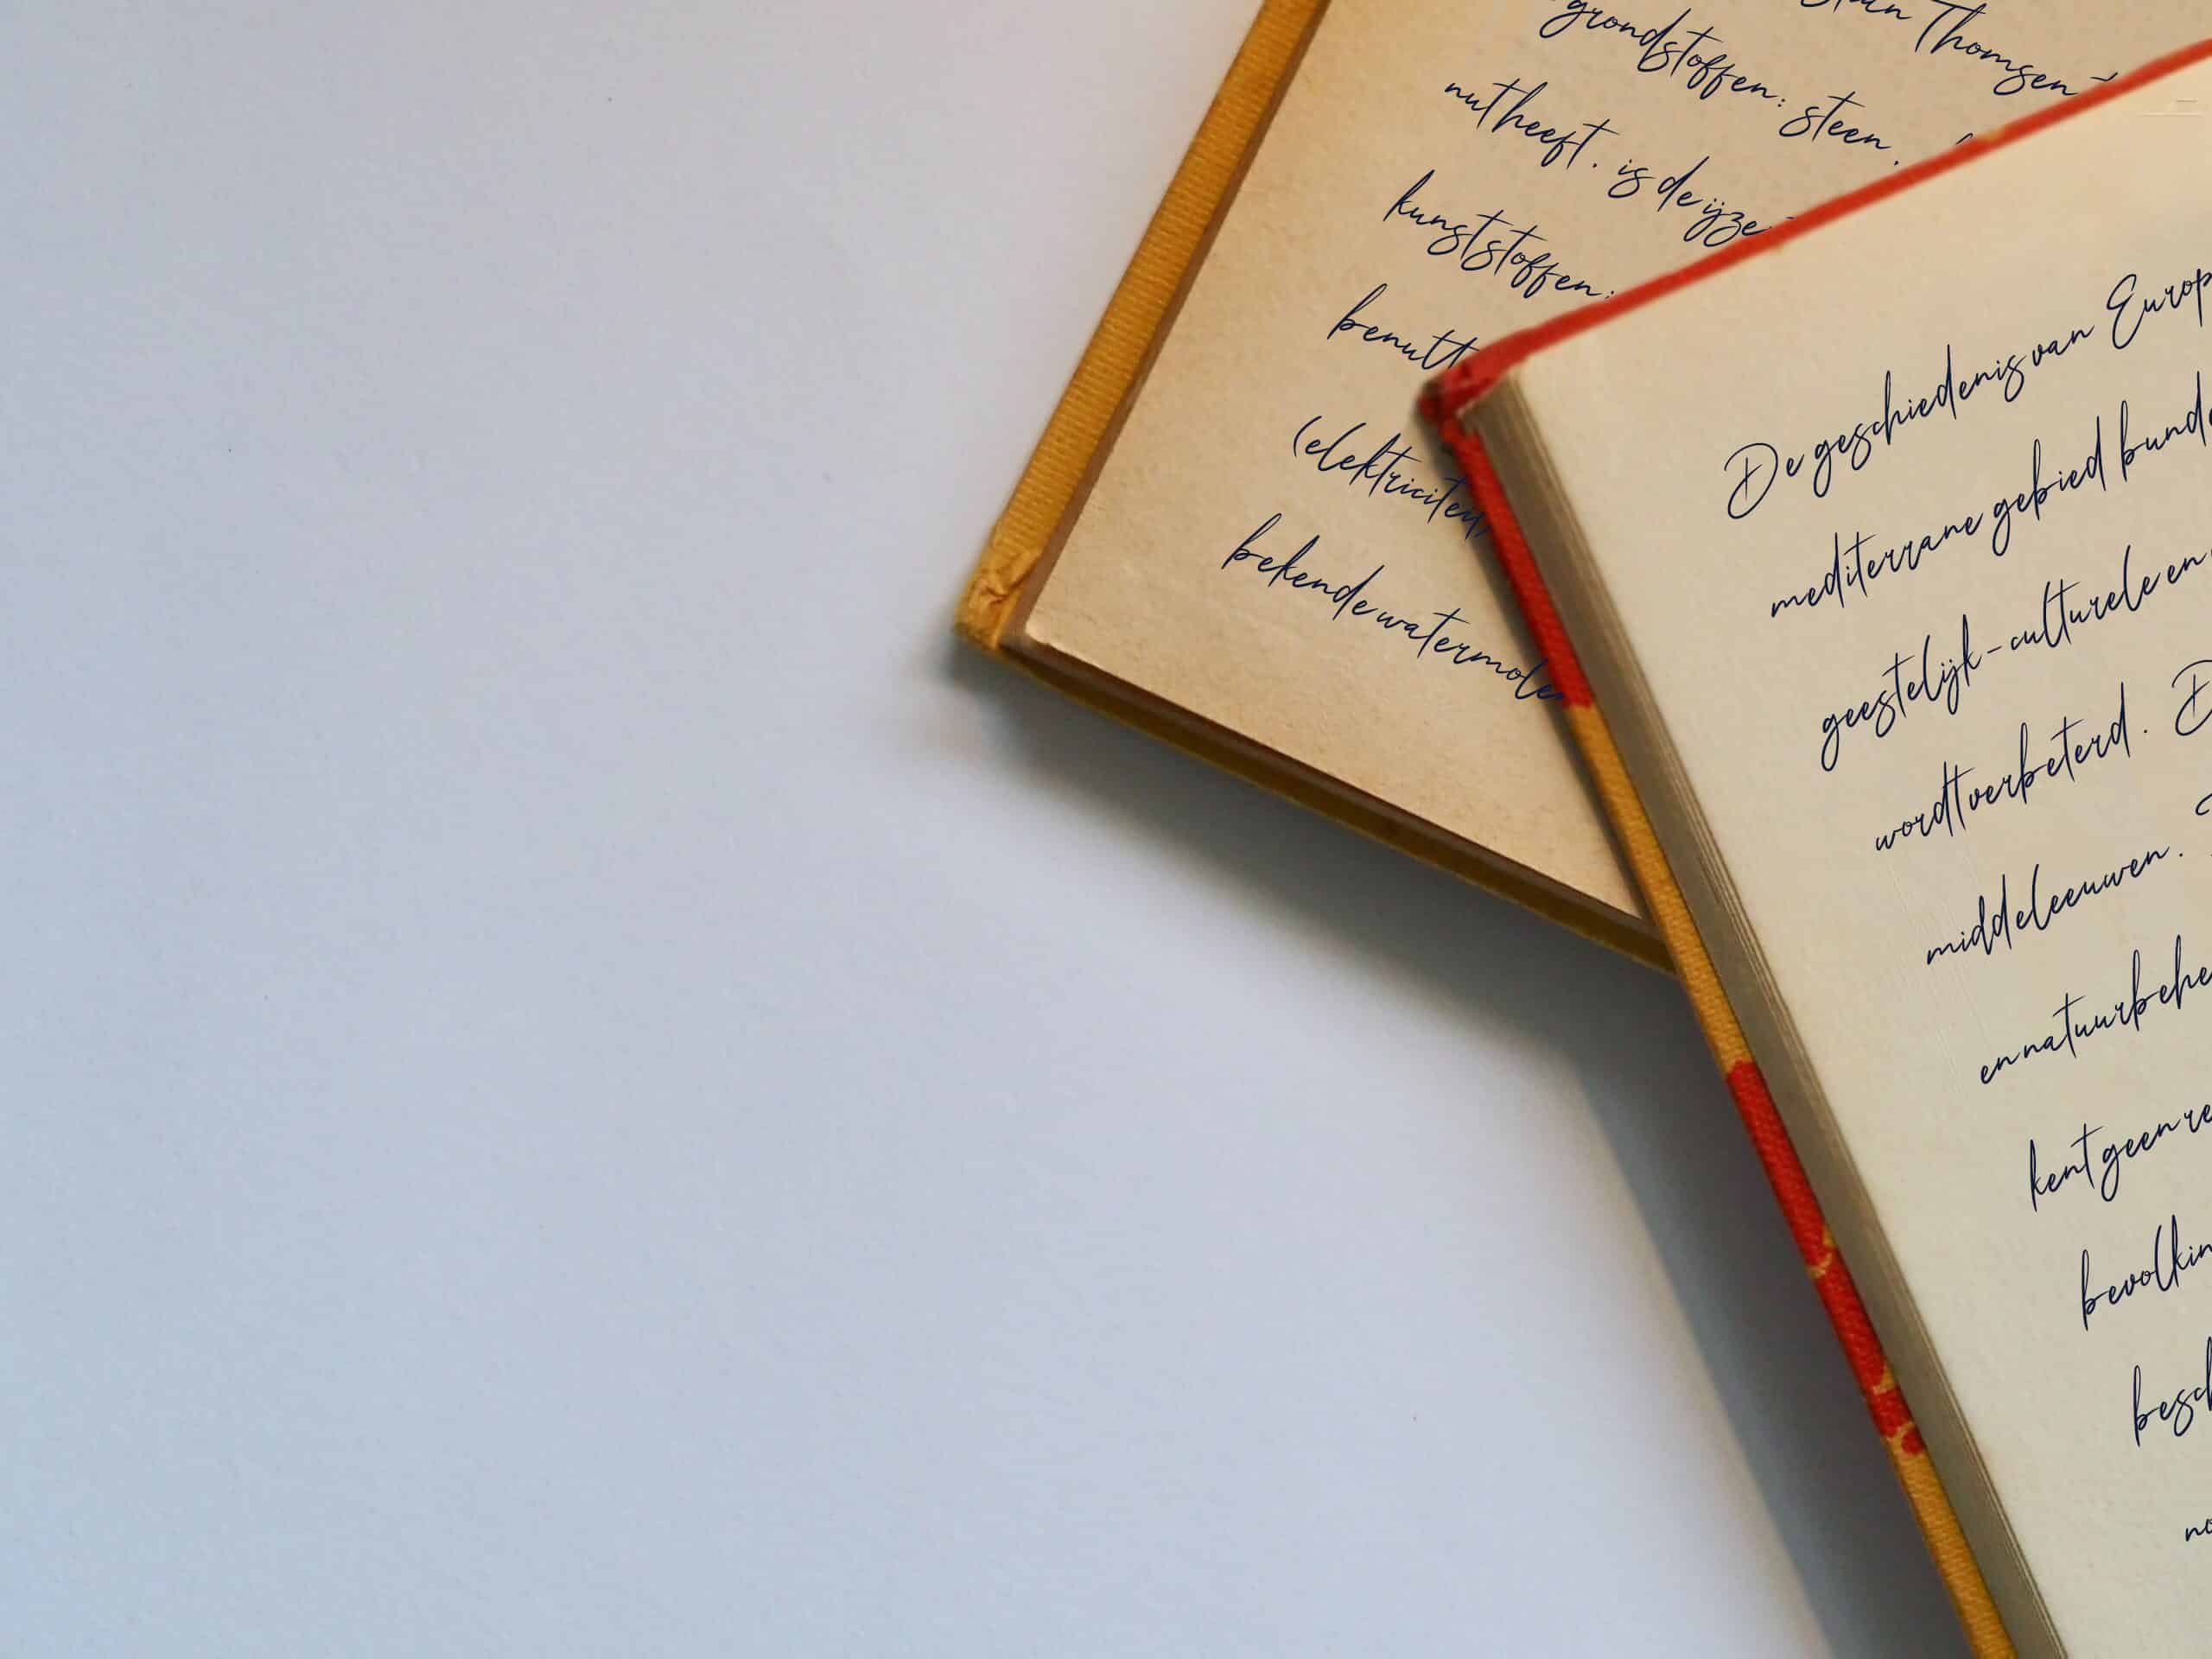 Thomsen
grondstoffen: steen.
nut heeft. is de ijze
kunststoffen:
benutt
(elektriciteit
bekende watermolen
De geschiedenis van Europ
mediterrane gebied bunde
geestelijk-culturele en
wordt verbeterd. D
middeleeuwen.
en natuurbehe
kent geen re
bevolkin
besch
no